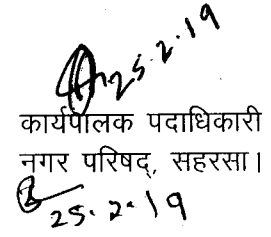 25.2.19
कार्यपालक पदाधिकारी
नगर परिषद्, सहरसा।
25.2.19